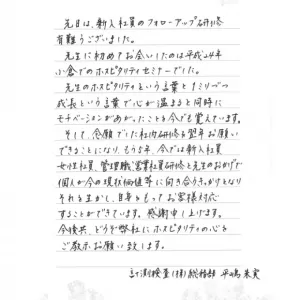 先日は、新入社員のフォローアップ研修
有難うございました。
先生に初めてお会いしたのは平成24年
小倉でのホスピタリティセミナーでした。
先生のホスピタリティという言葉と
成長という言葉で心が温まると同時に
モチベーションがあがったことを今でも覚えています。
そして、念願でした社内研修を翌年お願い
できることになり、もう8年、今では新入社員
女性社員、管理職、営業社員研修と先生のおかげで
個人が今の現状価値等に向き合うきっかけとなり
それを生かし、自身をもってお客様対応
することができています。感謝申し上げます。
今後共、どうぞ弊社にホスピタリティの心を
ご教示お願い致します。
計測検査(株)総務部 平嶋